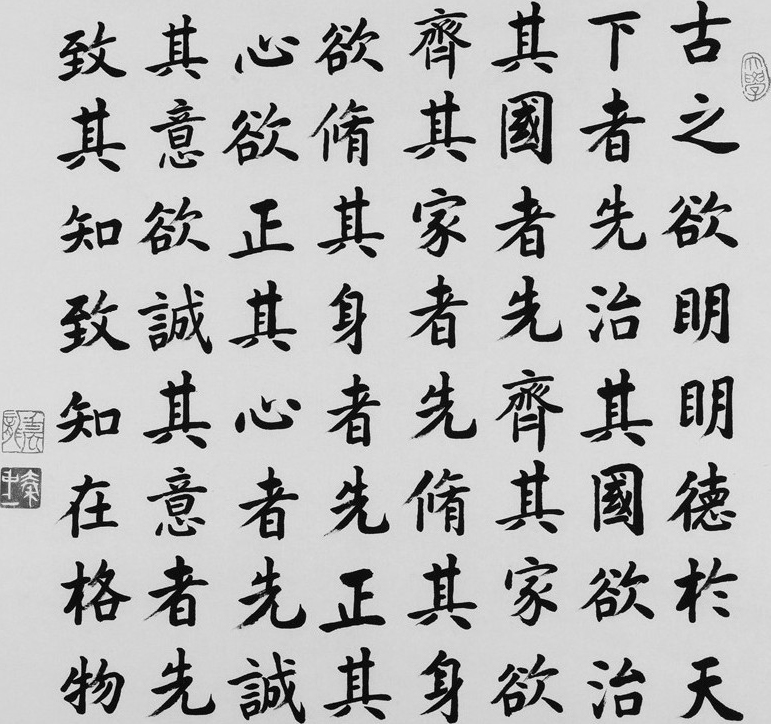 古之欲明明德於天
下者先治其國欲治
其國者先齊其家欲
齊其家者先脩其身
欲脩其身者先正其
心欲正其心者先誠
其意欲誠其意者先
致其知致知在格物
大學